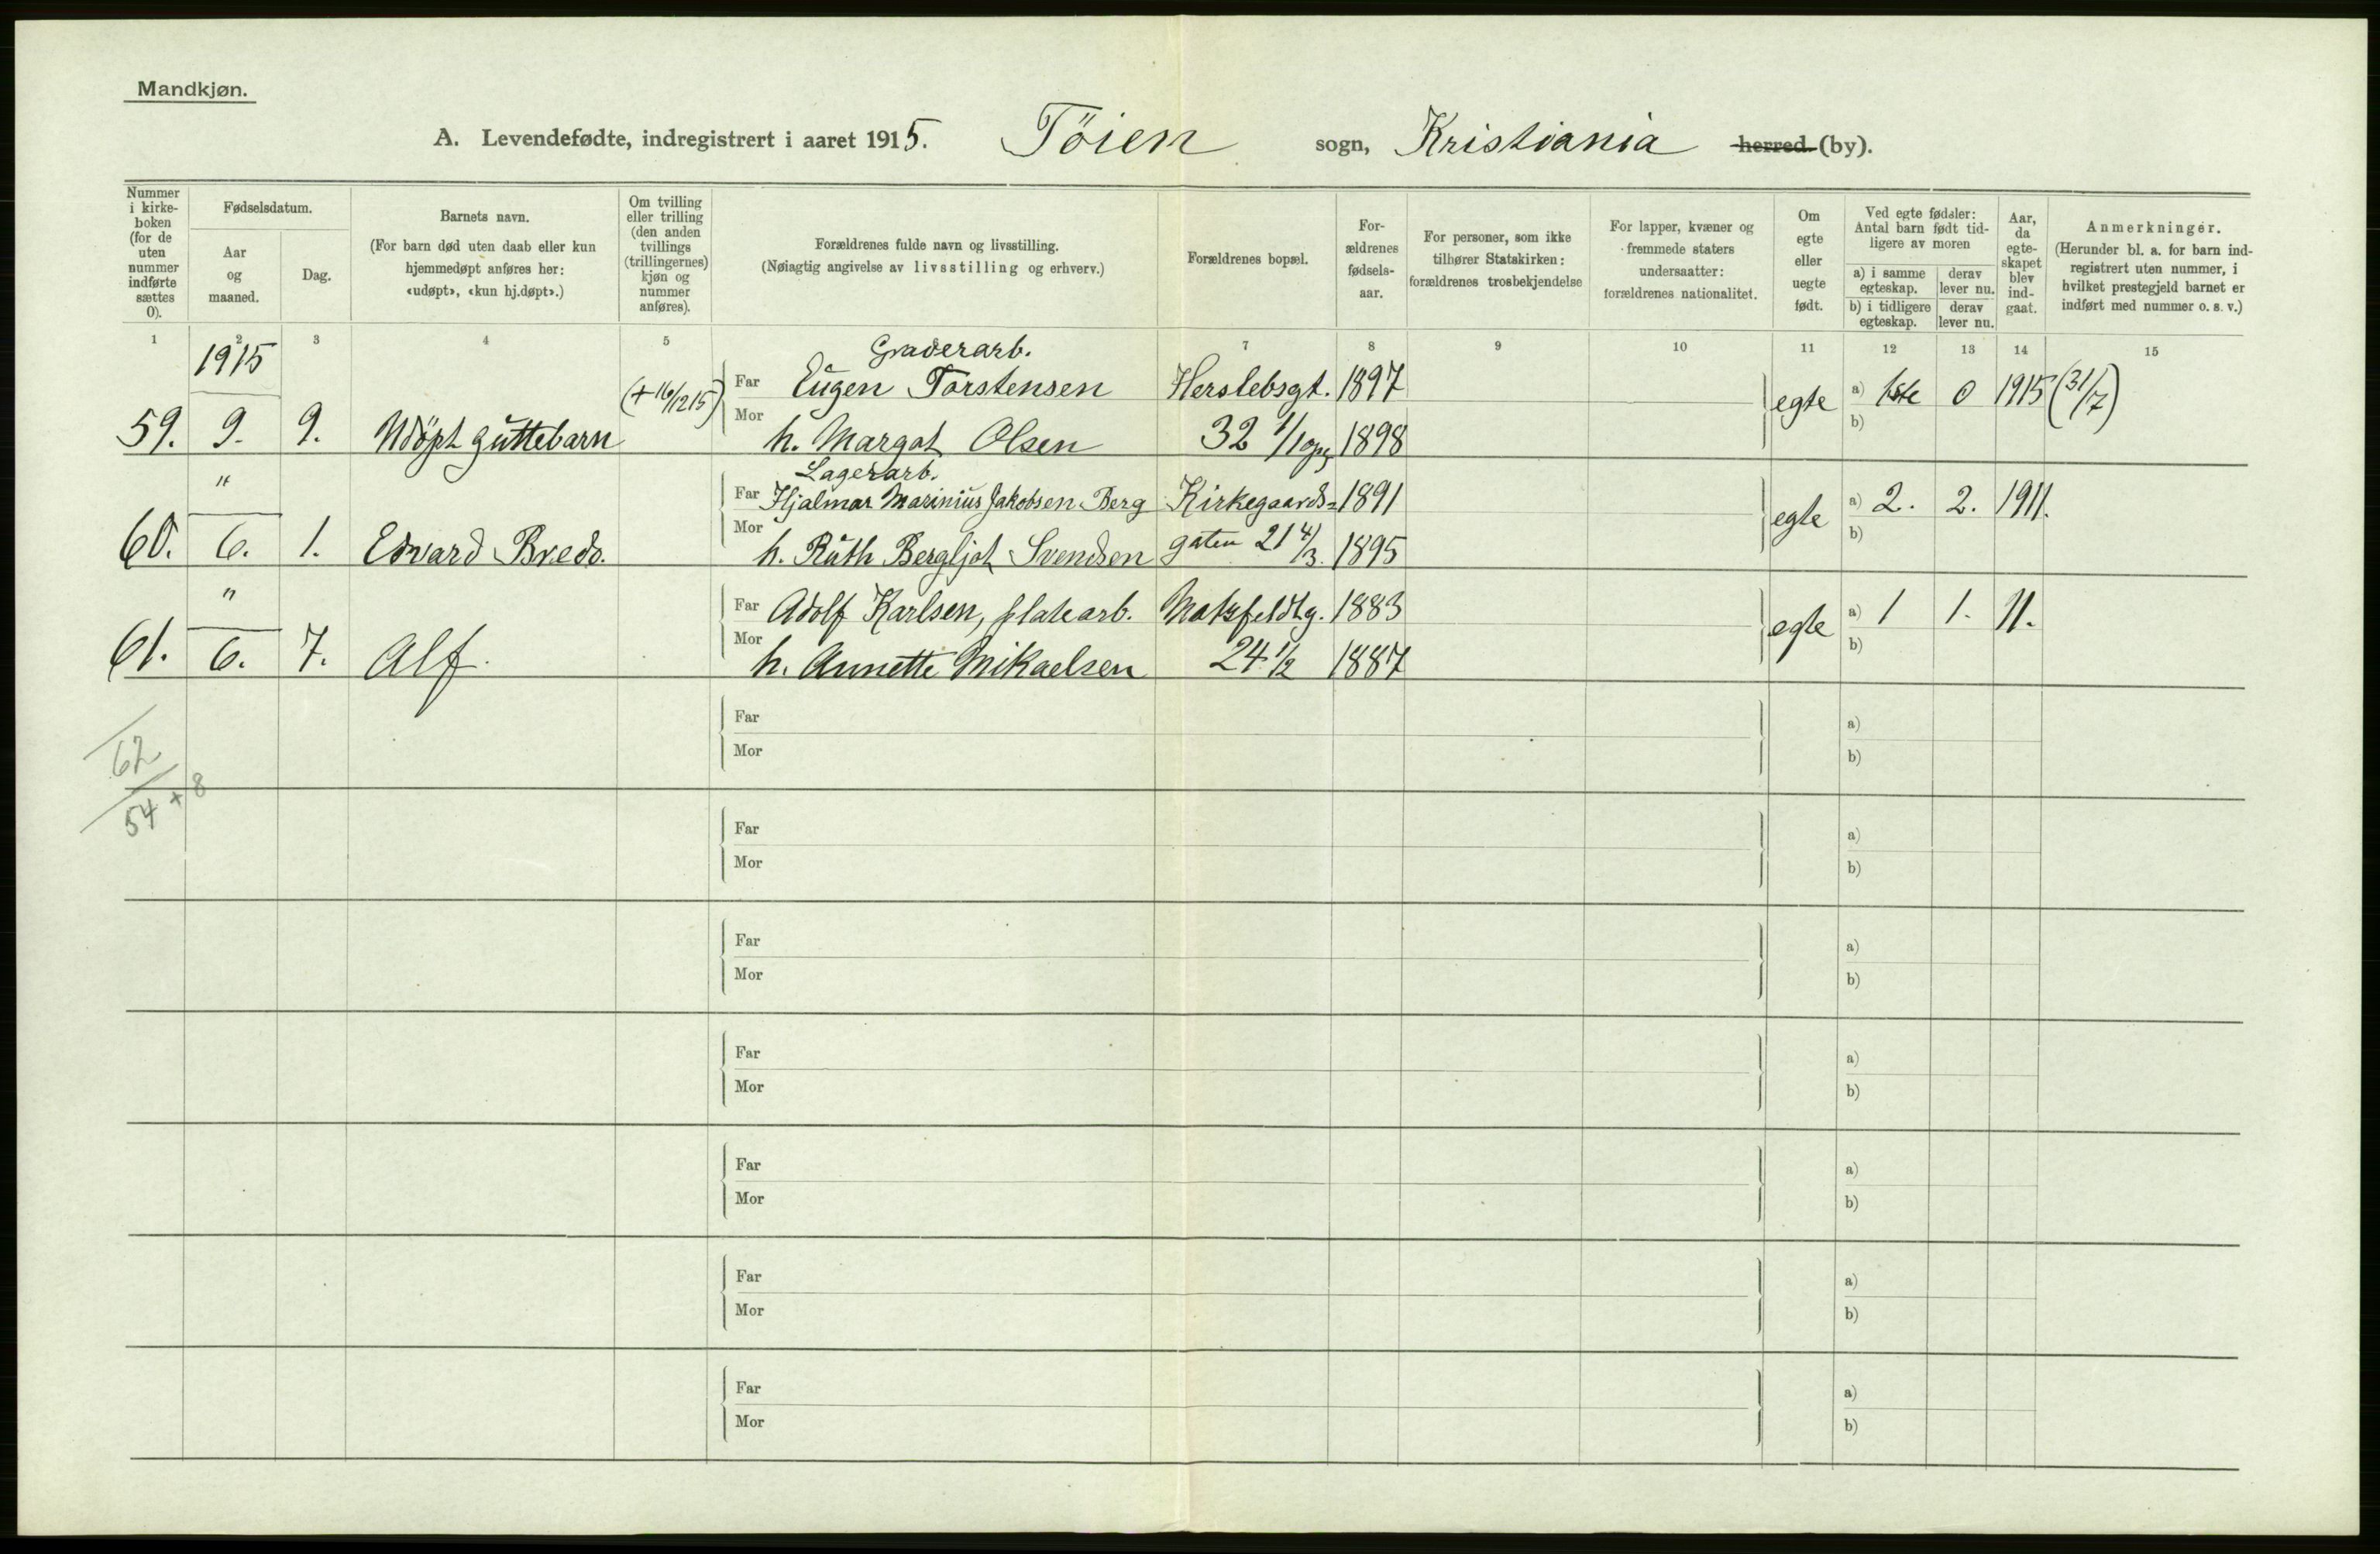 Mandkjøn.
A. Levendefødte, indregistrert i aaret 1915. Töien sogn, Kristiania herred (by).
Nummer i kirke-boken (for de uten nummer indførte sættes 0).
Fødselsdatum.
Aar og maaned.
Dag.
Barnets navn.
(For barn død uten daab eller kun hjemmedøpt anføres her: «udøpt», «kun hj.døpt».)
Om tvilling eller trilling (den anden tvillings (trillingernes) kjøn og nummer anføres).
Forældrenes fulde navn og livsstilling.
(Nøiagtig angivelse av livsstilling og erhverv.)
Forældrenes bopæl.
For-ældrenes fødsels-aar.
For personer, som ikke tilhører Statskirken: forældrenes trosbekjendelse
For lapper, kvæner og fremmede staters undersaatter: forældrenes nationalitet.
Om egte eller uegte født.
Ved egte fødsler: Antal barn født tid-ligere av moren
a) i samme egteskap. derav lever nu.
b) i tidligere egteskap. derav lever nu.
Aar, da egte-skapet blev ind-gaat.
Anmerkninger.
(Herunder bl. a. for barn ind-registrert uten nummer, i hvilket prestegjeld barnet er indført med nummer o. s. v.)
1 2 3 4 5 7 8 9 10 11 12 13 14 15
1915 Graderarb.
(+ 16/12 15) Far Eugen Torstensen Herslebsgt. 1897 egte a) 1ste 0 1915 (31/7)
59. 9. 9. Udöpt guttebarn Mor h. Margot Olsen 32 1/1 opg 1898 b)
" Lagerarb.
Far Hjalmar Marinius Jakobsen Berg Kirkegaards= 1891 egte a) 2. 2. 1911.
60. 6. 1. Edvard Bredo. Mor h. Ruth Bergljot Svendsen gaten 21 4/3. 1895 b)
" Far Adolf Karlsen, platearb. Motzfeldtg. 1883 egte a) 1 1. 11.
61. 6. 7. Alf. Mor h. Annette Mikaelsen 24 1/2 1887 b)
Far a)
Mor b)
62
54 + 8
Far a)
Mor b)
Far a)
Mor b)
Far a)
Mor b)
Far a)
Mor b)
Far a)
Mor b)
Far a)
Mor b)